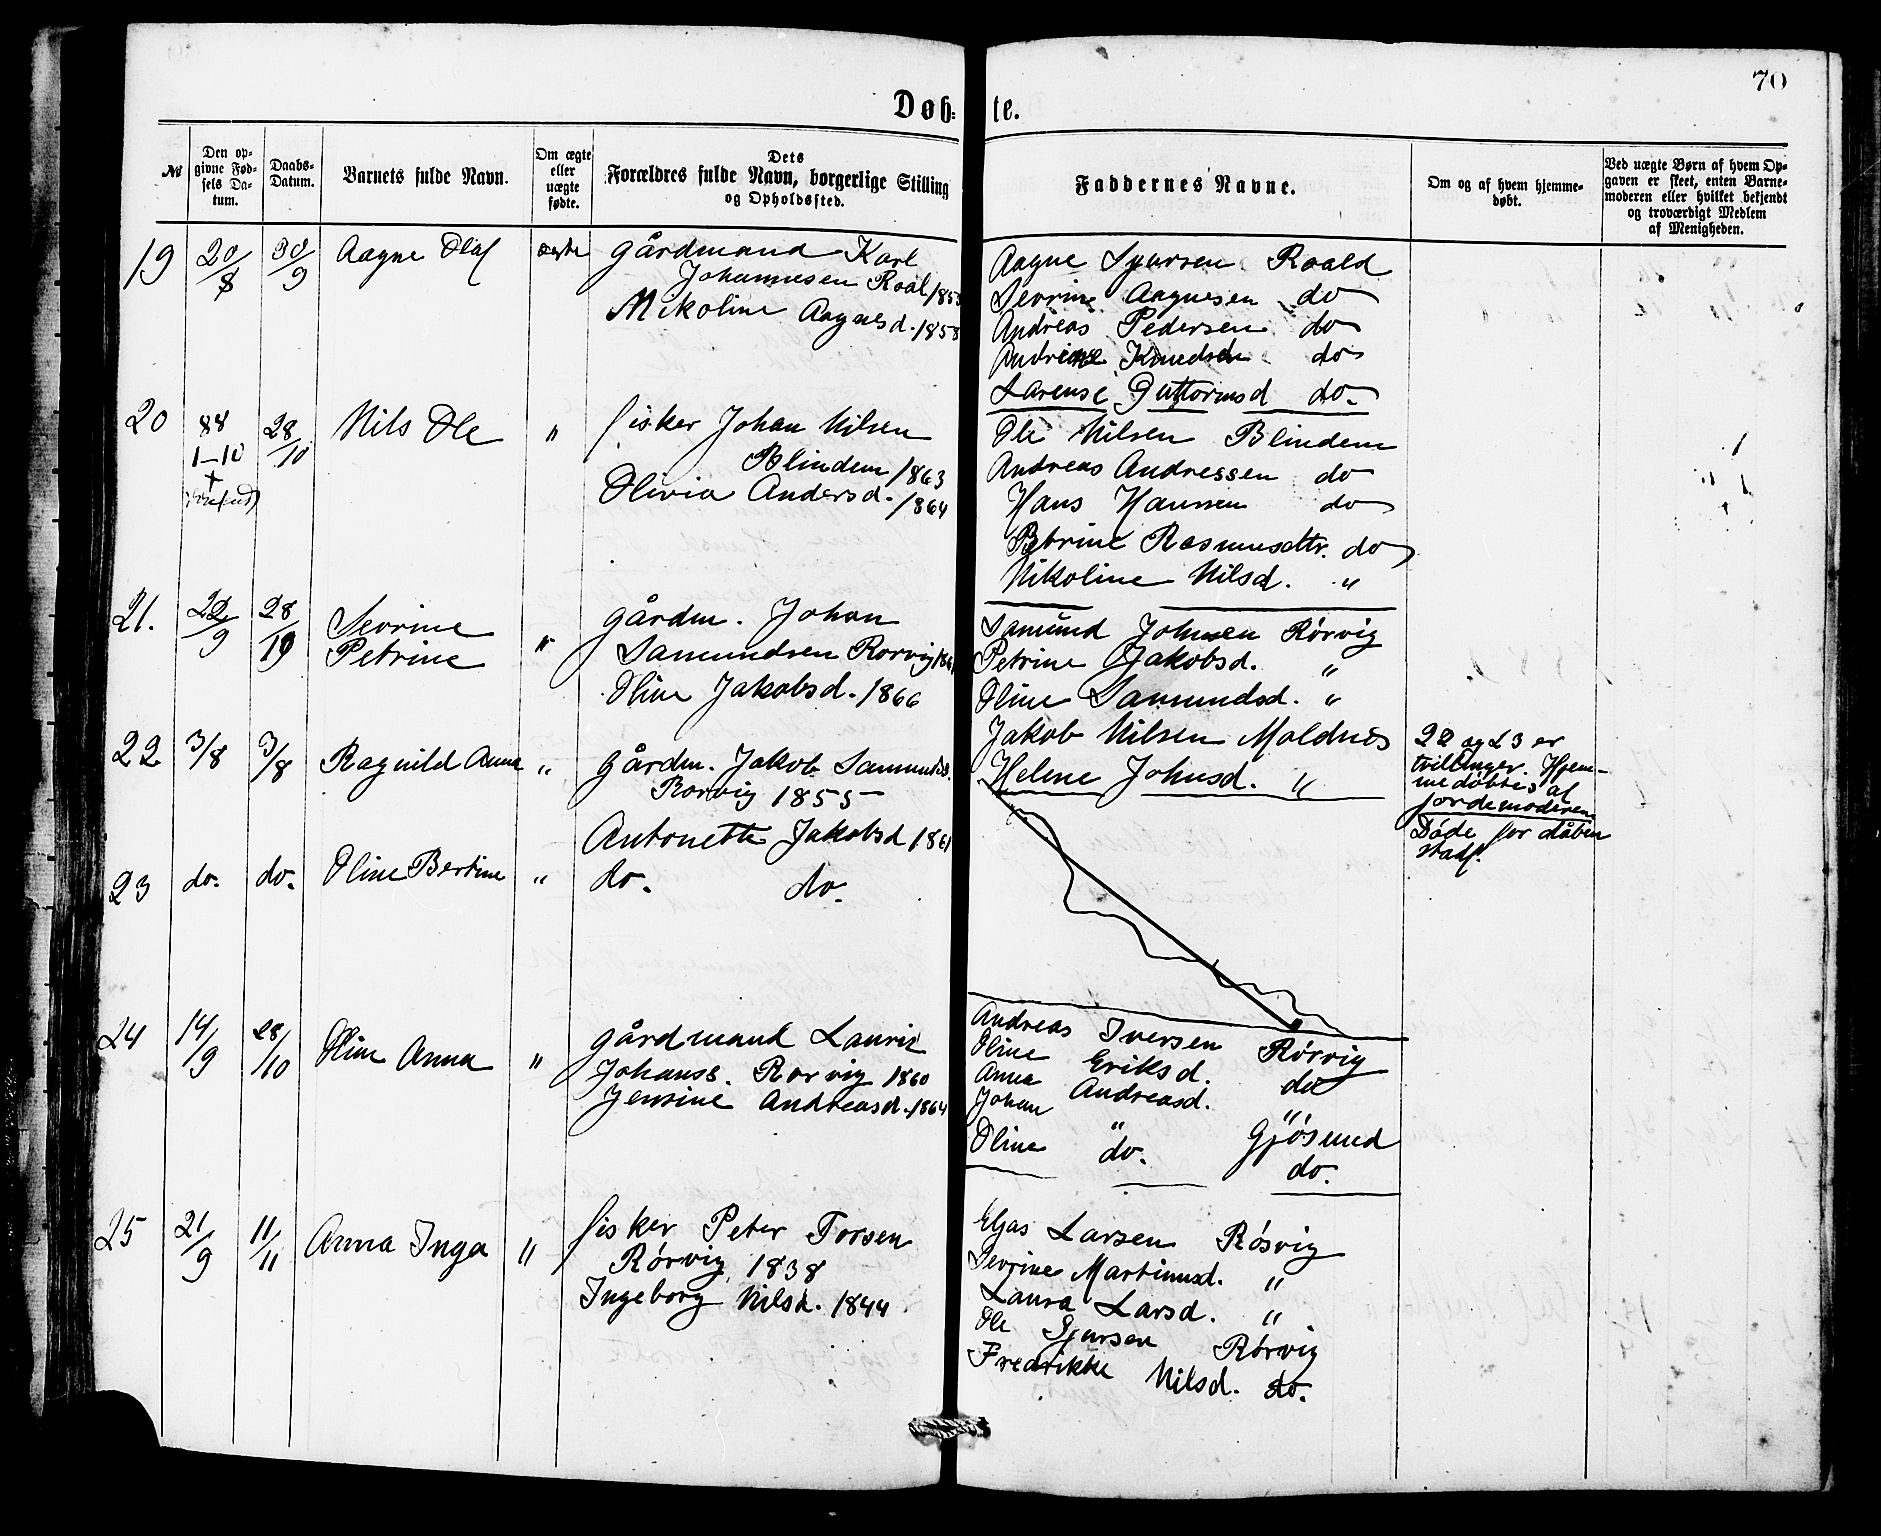 70
Døb-te.
№
Den op-
givne Fød-
sels Da-
tum.
Daabs-
Datum.
Barnets fulde Navn.
Om ægte
eller
uægte
fødte.
Dets
Forældres fulde Navn, borgerlige Stilling
og Opholdssted.
Faddernes Navne.
Om og af hvem hjemme-
døbt.
Ved uægte Børn af hvem Op-
gaven er skeet, enten Barne-
moderen eller hvilket bekjendt
og troværdigt Medlem
af Menigheden.
19 20/8 30/9 Aagne Olaf ægte gårdmand Karl
Johannesen Roal 1858
Nikoline Aagnesd. 1858
Aagne Syvrsen Roald
Sevrine Aagnesen do
Andreas Pedersen do
Andrine Knudsen do
Larense Guttormsd do.
20 88
1-10 28/10 Nils Ole " fisker Johan Nilsen
Blindem 1863
Olivia Andersd. 1864
Ole Nilsen Blindem
Andreas Andressen do
Hans Hansen do
Petrine Rasmusdttr. do
Nikoline Nilsd. "
21. 22/9 28/10 Sevrine
Petrine " gårdm. Johan
Samundsen Rorvig
Oline Jakobsd. 1866
Samund Johnsen Rørvig
Petrine Jakobsd. "
Oline Samundsd. "
Jakob Nilsen Moldnes
Helene Johnsd. "
22 3/8 3/8 Ragnild Anna " gårdm. Jakob Samunds.
Rorvig 1855
Antonette Jakobsd 1861
22 og 23 er
tvillinger. Hjem-
medøbtes af
jordemoderen
Døde før dåben
stadf.
23 do. do. Oline Bertine " do. do.
24 14/9 28/10 Oline Anna " gårdmand Laurit
Johanss. Rorvig 1860
Jensine Andreasd. 1864
Andreas Iversen Rørvig
Oline Eriksd. do
Anna Andreasd. "
Johan " Gjøsund
Oline do. do.
25 21/9 11/11 Anna Inga " fisker Peter Torsen
Rørvig 1838
Ingeborg Nilsd. 1844
Eljas Larsen Røsvig
Sevrine Martinusd. "
Laura Larsd. "
Ole Sjursen Rørvig
Fredrikke Nilsd. do.